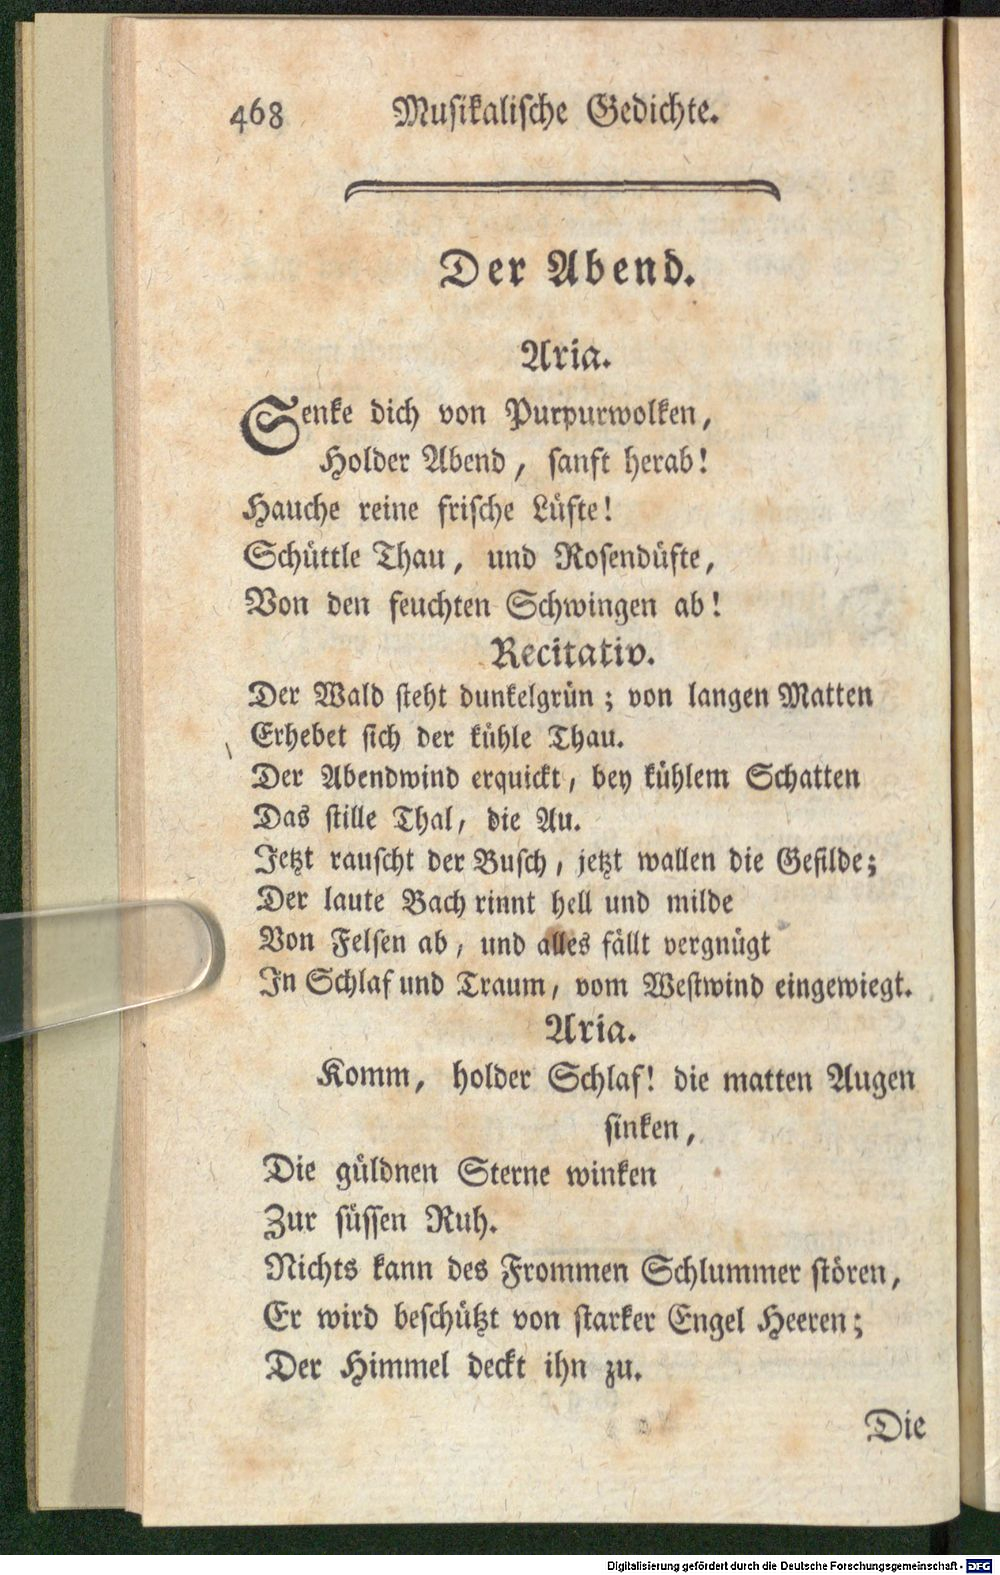 468 Musikalische Gedichte.
Der Abend.
Aria.
Senke dich von Purpurwolken,
Holder Abend, sanft herab!
Hauche reine frische Lüfte!
Schüttle Thau, und Rosendüfte,
Von den feuchten Schwingen ab!
Recitativ.
Der Wald steht dunkelgrün; von langen Matten
Erhebet sich der kühle Thau.
Der Abendwind erquickt, bey kühlem Schatten
Das stille Thal, die Au.
Jetzt rauscht der Busch, jetzt wallen die Gefilde;
Der laute Bach rinnt hell und milde
Von Felsen ab, und alles fällt vergnügt
In Schlaf und Traum, vom Westwind eingewiegt.
Aria.
Komm, holder Schlaf! die matten Augen
sinken,
Die güldnen Sterne winken
Zur süssen Ruh.
Nichts kann des Frommen Schlummer stören,
Er wird beschützt von starker Engel Heeren;
Der Himmel deckt ihn zu.
Die
Digitalisierung gefördert durch die Deutsche Forschungsgemeinschaft - DFG